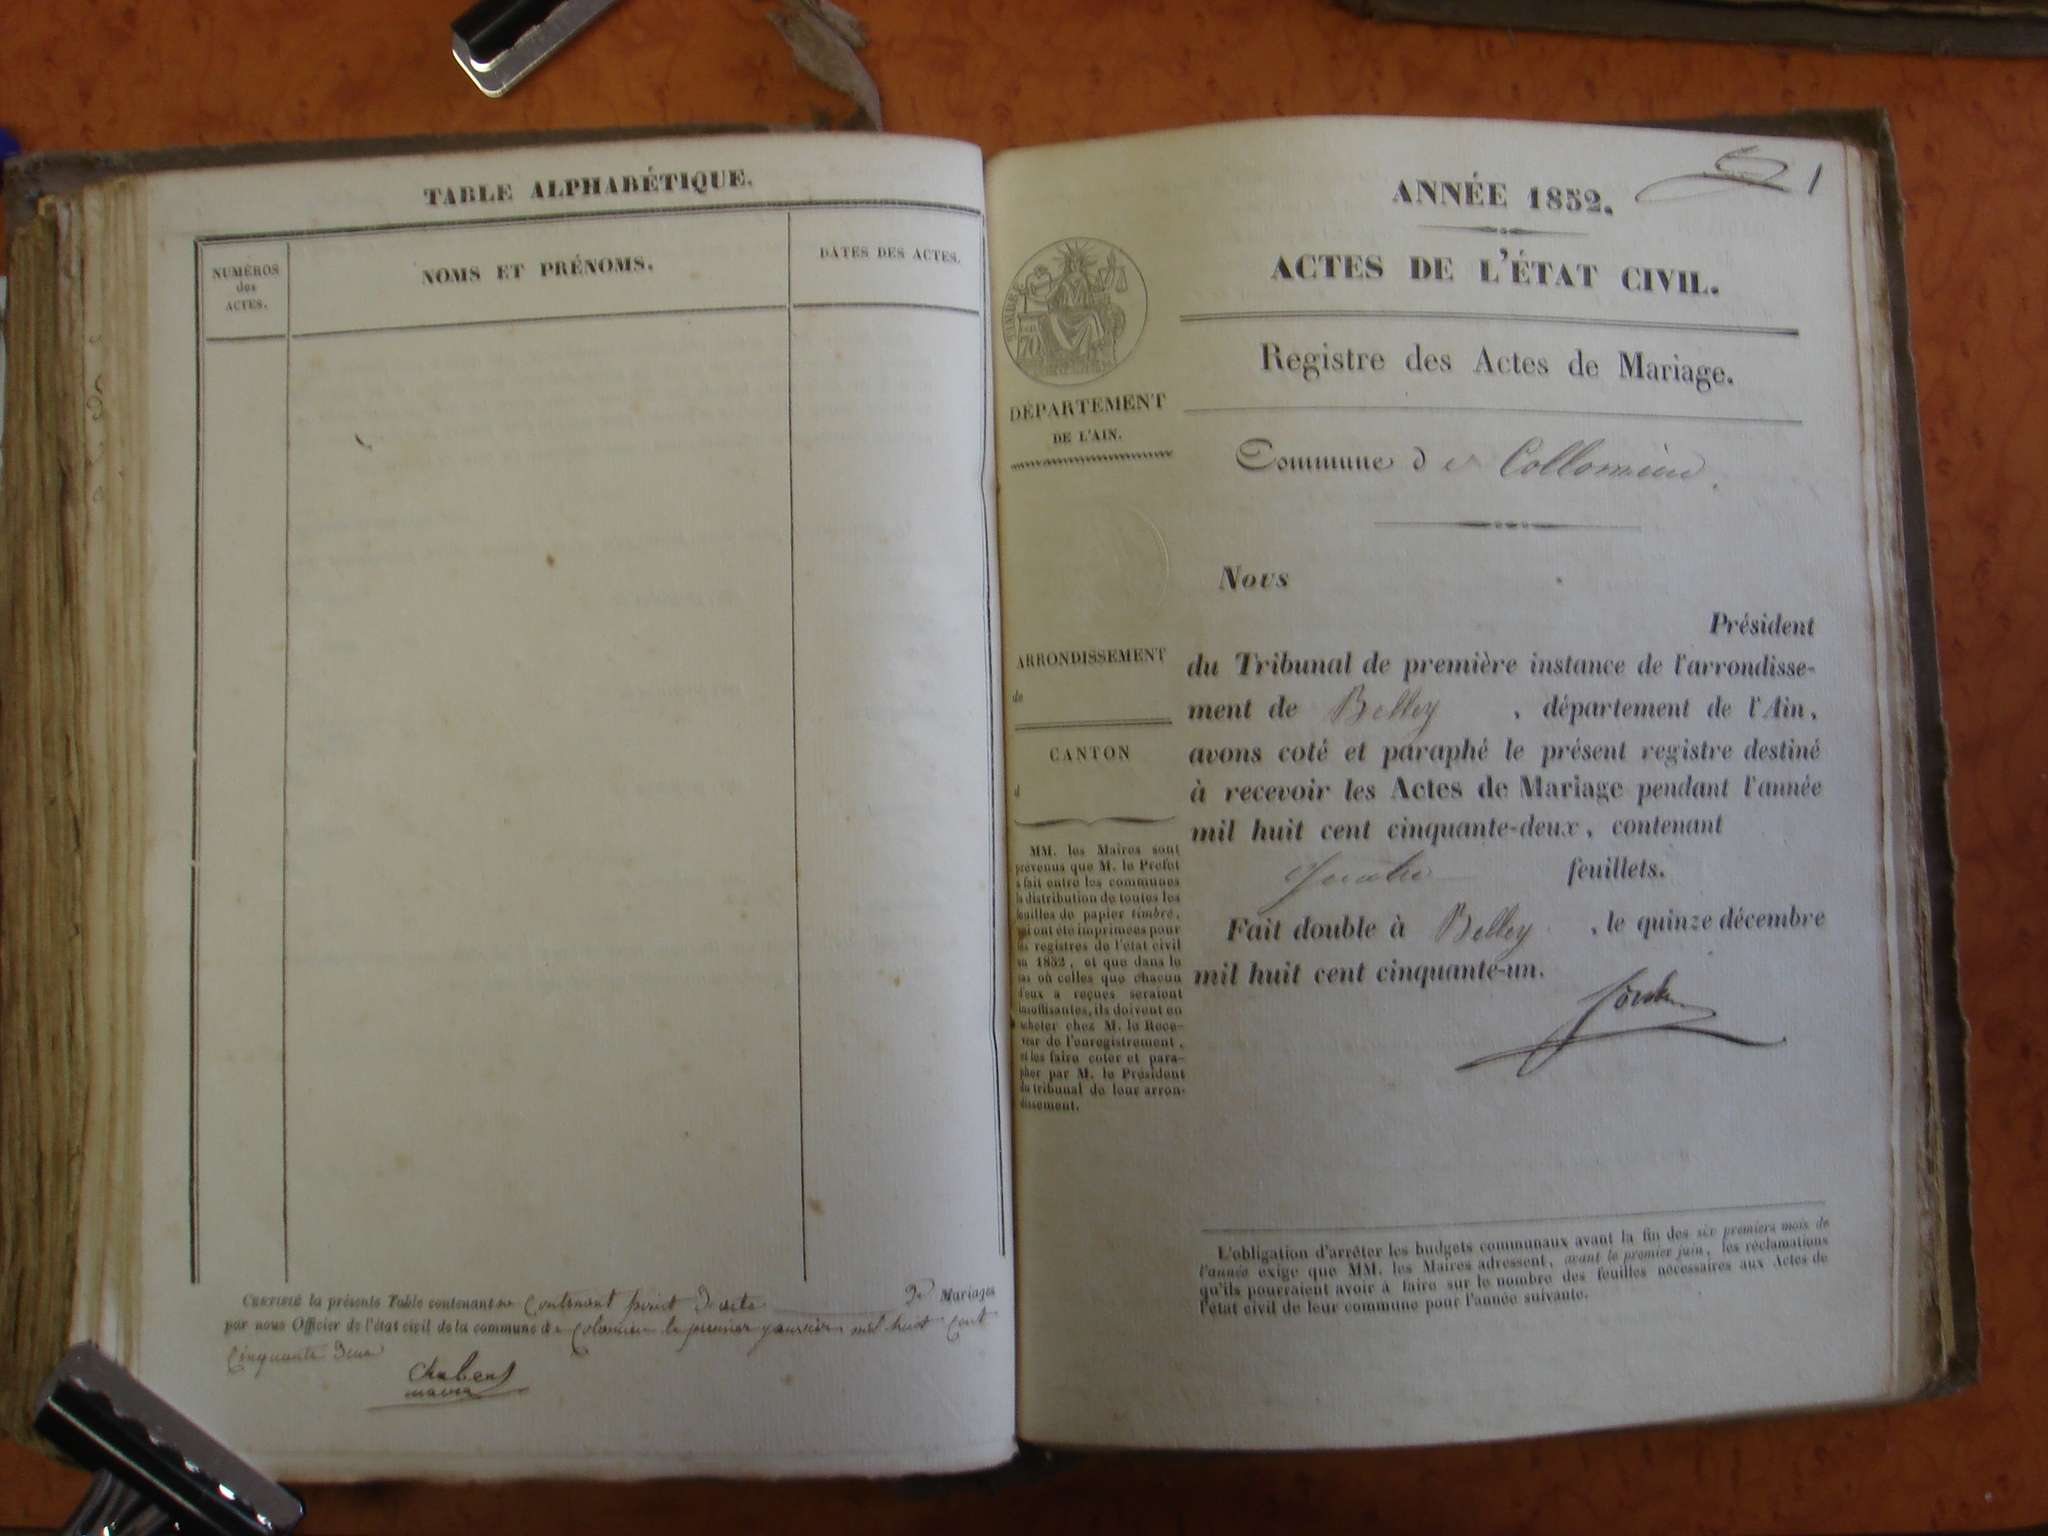 TABLE ALPHABÉTIQUE.
NUMÉROS
des
ACTES.
NOMS ET PRÉNOMS.
DATES DES ACTES.
CERTIFIÉ la présente Table contenant contenant point d'acte de Mariages
par nous Officier de l'état civil de la commune de Colomieu le premier janvier mil huit cent
cinquante deux
maire
1
ANNÉE 1852.
ACTES DE L'ÉTAT CIVIL.
TIMBRE
70
DÉPARTEMENT
DE L'AIN.
Registre des Actes de Mariage.
Commune de Collomieu.
ARRONDISSEMENT
de
CANTON
d
MM. les Maires sont
prévenus que M. le Préfet
a fait entre les communes
la distribution de toutes les
feuilles de papier timbré,
qui ont été imprimées pour
les registres de l'état civil
en 1852, et que dans le
cas où celles que chacun
d'eux a reçues seraient
insuffisantes, ils doivent en
acheter chez M. le Rece-
veur de l'enregistrement,
et les faire coter et para-
pher par M. le Président
du tribunal de leur arron-
dissement.
Nous
Président
du Tribunal de première instance de l'arrondisse-
ment de Belley, département de l'Ain,
avons coté et paraphé le présent registre destiné
à recevoir les Actes de Mariage pendant l'année
mil huit cent cinquante-deux, contenant
quatre feuillets.
Fait double à Belley, le quinze décembre
mil huit cent cinquante-un.
L'obligation d'arrêter les budgets communaux avant la fin des six premiers mois de
l'année exige que MM. les Maires adressent, avant le premier juin, les réclamations
qu'ils pourraient avoir à faire sur le nombre des feuilles nécessaires aux Actes de
l'état civil de leur commune pour l'année suivante.